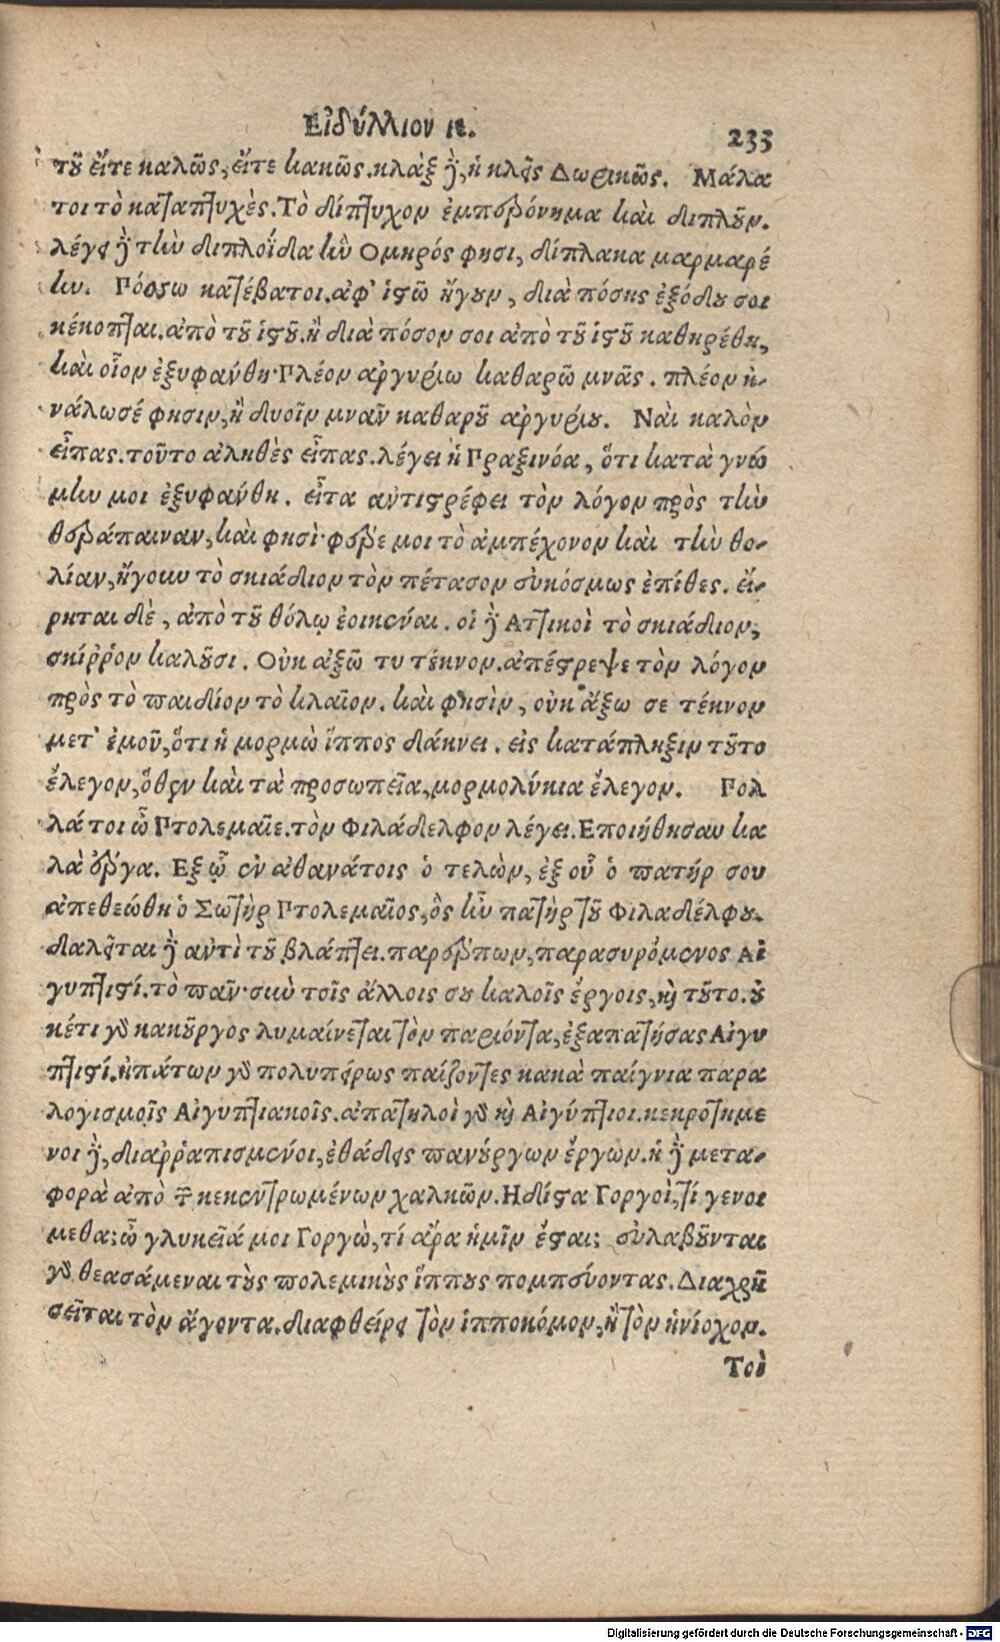 Εἰδύλλιον ιε. 233
τοῦ εἴτε καλῶς, εἴτε κακῶς. κλὰξ δὲ, ἡ κλεὶς Δωρικῶς. Μάλα
τοι τὸ καταπτυχὲς. Τὸ δίπτυχον ἐμπερόνημα καὶ διπλοῦν.
λέγει δὲ τὴν διπλοΐδα ἣν Ομηρός φησι, δίπλακα μαρμαρέ
ην. Πόσσω κατέβα τοι. ἀφ' ἱστῶ ἤγουν, διὰ πόσης ἐξόδου σοι
κέκοπται. ἀπὸ τοῦ ἱστοῦ. ἢ διὰ πόσου σοι ἀπὸ τοῦ ἱστοῦ καθηρέθη,
καὶ οἷον ἐξυφάνθη· Πλέον ἀργυρίω καθαρῶ μνᾶς. πλέον ἠ-
νάλωσέ φησιν, ἢ δυοῖν μναῖν καθαροῦ ἀργυρίου. Ναὶ καλὸν
εἶπας. τοῦτο ἀληθὲς εἶπας. λέγει ἡ Πραξινόα, ὅτι κατὰ γνώ
μην μοι ἐξυφάνθη. εἶτα ἀντιστρέφει τὸν λόγον πρὸς τὴν
θεράπαιναν, καὶ φησὶ· φέρε μοι τὸ ἀμπέχονον καὶ τὴν θο-
λίαν, ἤγουν τὸ σκιάδιον τὸν πέτασον εὐκόσμως ἐπίθες. εἴ-
ρηται δὲ, ἀπὸ τοῦ θόλῳ ἐοικέναι. οἱ δὲ Ατ̓τικοὶ τὸ σκιάδιον,
σκίῤῥον καλοῦσι. Οὐκ ἀξῶ τυ τέκνον. ἀπέστρεψε τὸν λόγον
πρὸς τὸ παιδίον τὸ κλαῖον. καὶ φησὶν, οὐκ ἄξω σε τέκνον
μετ' ἐμοῦ, ὅτι ἡ μορμὼ ἵππος δάκνει. εἰς κατάπληξιν τοῦτο
ἔλεγον, ὅθεν καὶ τὰ προσωπεῖα, μορμολύκια ἔλεγον. Πολ
λά τοι ὦ Πτολεμαῖε. τὸν Φιλάδελφον λέγει. Εποιήθησαν κα
λὰ ἔργα. Εξ ᾧ ἐν ἀθανάτοις ὁ τελὼν, ἐξ οὗ ὁ πατήρ σου
ἀπεθεώθη ὁ Σωτὴρ Πτολεμαῖος, ὃς ἦν πατὴρ τοῦ Φιλαδέλφου.
δαλεῖται δὲ ἀντὶ τοῦ βλάπτει. παρέρπων, παρασυρόμενος Αἰ
γυπτιστί. τὸ πᾶν· σὺν τοῖς ἄλλοις σου καλοῖς ἔργοις, καὶ τοῦτο. οὐ
κέτι γὰρ κακοῦργος λυμαίνεται τὸν παριόντα, ἐξαπατήσας Αἰγυ
πτιστί. ἠπάτων γὰρ πολυπείρως παίζοντες κακὰ παίγνια παρα
λογισμοῖς Αἰγυπτιακοῖς. ἀπατηλοὶ γὰρ καὶ Αἰγύπτιοι. κεκροτημέ
νοι δὲ, διαῤῥαπισμένοι, ἐθάδες πανούργων ἔργων. ἡ δὲ μετα-
φορὰ ἀπὸ τῶν κεκεντρωμένων χαλκῶν. Ηδίστα Γοργοῖ, τί γενοι
μεθα; ὦ γλυκεῖά μοι Γοργὼ, τί ἄρα ἡμῖν ἔσται; εὐλαβοῦνται
γὰρ θεασάμεναι τοὺς πολεμικοὺς ἵππους πομπεύοντας. Διαχρη
σεῖται τὸν ἄγοντα. διαφθείρει τὸν ἱπποκόμον, ἢ τὸν ἡνίοχον.
Τοὶ
Digitalisierung gefördert durch die Deutsche Forschungsgemeinschaft - DFG